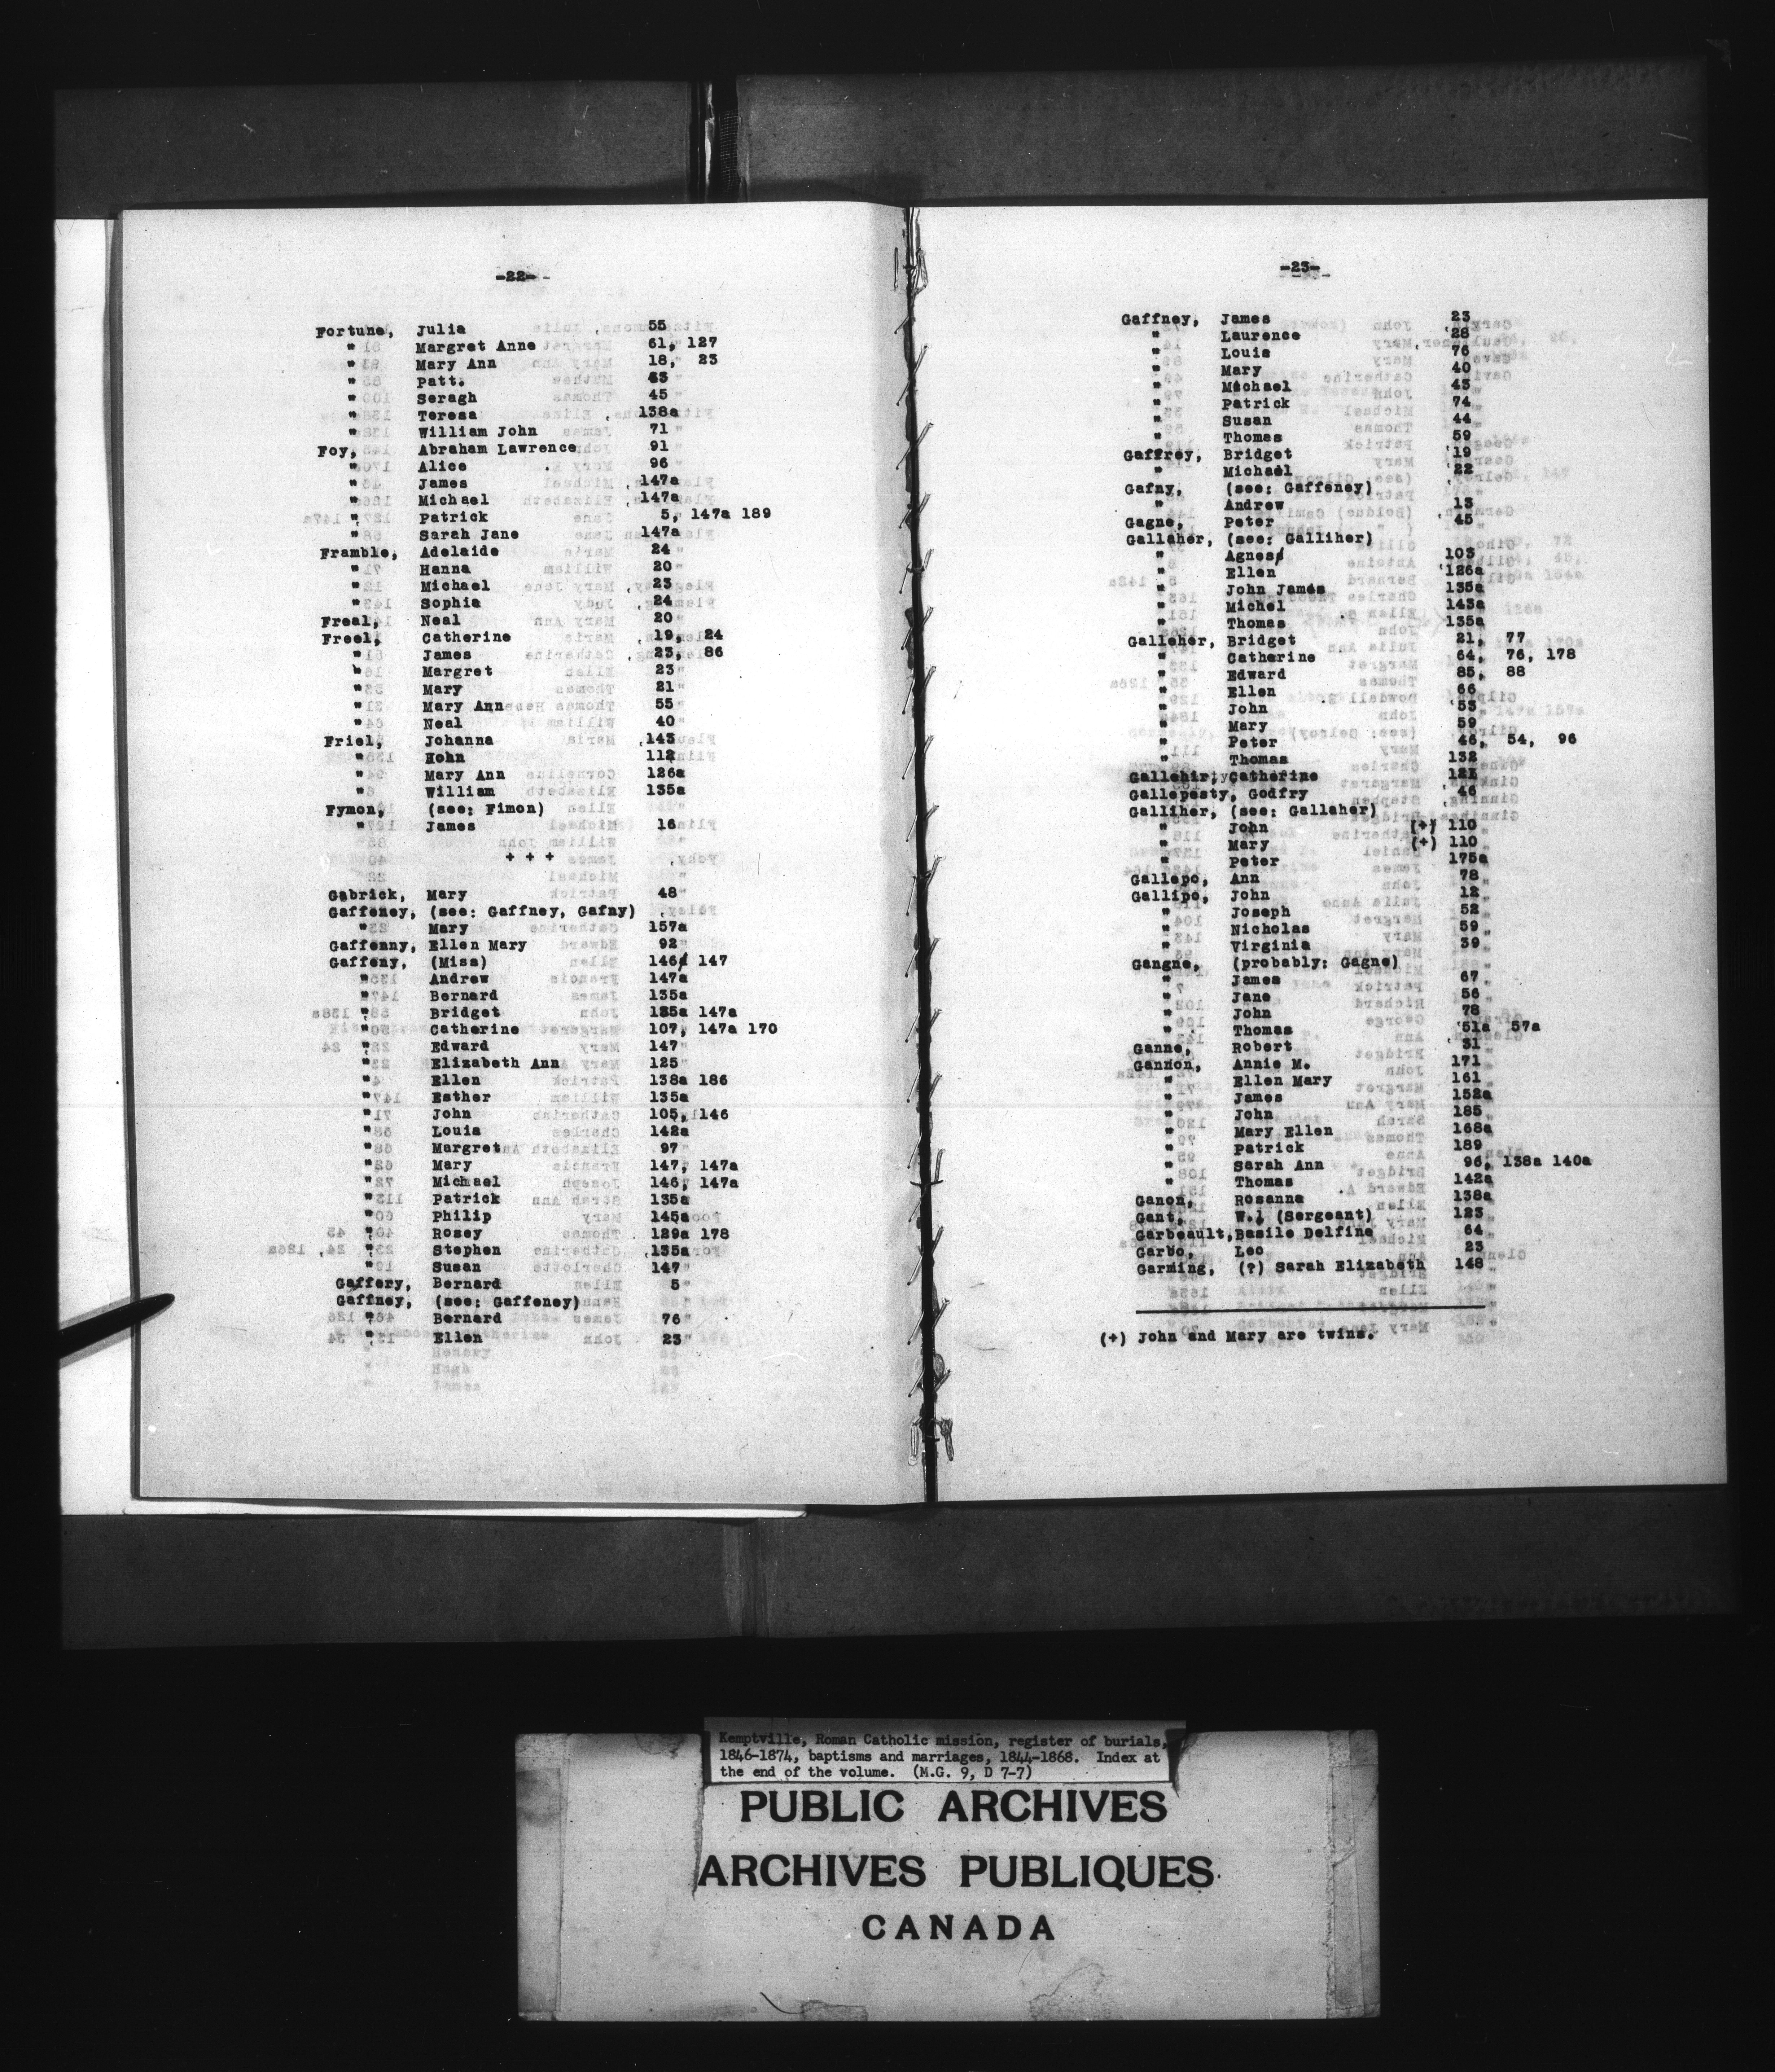 -22-
Fortune, Julia 55
" Margret Anne 61, 127
" Mary Ann 18, 23
" Patt. 63
" Seragh 45
" Teresa 138a
" William John 71
Foy, Abraham Lawrence 91
" Alice 96
" James 147a
" Michael 147a
" Patrick 5, 147a 189
" Sarah Jane 147a
Framble, Adelaide 24
" Hanna 20
" Michael 23
" Sophia 24
Freal, Neal 20
Freel, Catherine 19, 24
" James 23, 86
" Margret 23
" Mary 21
" Mary Ann 55
" Neal 40
Friel, Johanna 143
" Hohn 112
" Mary Ann 126a
" William 135a
Fymon, (see: Fimon)
" James 16
+ + +
Gabrick, Mary 48
Gaffeney, (see: Gaffney, Gafny)
" Mary 157a
Gaffenny, Ellen Mary 92
Gaffeny, (Miss) 146, 147
" Andrew 147a
" Bernard 135a
" Bridget 135a 147a
" Catherine 107, 147a 170
" Edward 147
" Elizabeth Ann 125
" Ellen 138a 186
" Esther 135a
" John 105, 146
" Louis 142a
" Margret 97
" Mary 147, 147a
" Michael 146, 147a
" Patrick 135a
" Philip 145a
" Rosey 129a 178
" Stephen 135a
" Susan 147
Gaffery, Bernard 5
Gaffney, (see: Gaffeney)
" Bernard 76
" Ellen 23
-23-
Gaffney, James 23
" Laurence 28
" Louis 76
" Mary 40
" Michael 43
" Patrick 74
" Susan 44
" Thomas 59
Gaffrey, Bridget 19
" Michael 22
Gafny, (see: Gaffeney)
" Andrew 13
Gagne, Peter 45
Gallaher, (see: Galliher)
" Agnes 103
" Ellen 126a
" John James 135a
" Michel 143a
" Thomas 135a
Galleher, Bridget 21, 77
" Catherine 64, 76, 178
" Edward 85, 88
" Ellen 66
" John 53
" Mary 59
" Peter 46, 54, 96
" Thomas 132
Gallehir, Catherine 121
Gallepesty, Godfry 46
Galliher, (see: Gallaher)
" John (+) 110
" Mary (+) 110
" Peter 175a
Gallepo, Ann 78
Gallipo, John 12
" Joseph 52
" Nicholas 59
" Virginia 39
Gangne, (probably: Gagne)
" James 67
" Jane 56
" John 78
" Thomas 51a 57a
Ganne, Robert 31
Gannon, Annie M. 171
" Ellen Mary 161
" James 152a
" John 185
" Mary Ellen 168a
" Patrick 189
" Sarah Ann 96, 138a 140a
" Thomas 142a
Ganon, Rosanna 138a
Gant, W. (Sergeant) 123
Garbeault, Basile Delfine 64
Garbo, Leo 23
Garming, (?) Sarah Elizabeth 148
(+) John and Mary are twins.
Kemptville, Roman Catholic mission, register of burials,
1846-1874, baptisms and marriages, 1844-1868. Index at
the end of the volume. (M.G. 9, D 7-7)
PUBLIC ARCHIVES
ARCHIVES PUBLIQUES
CANADA